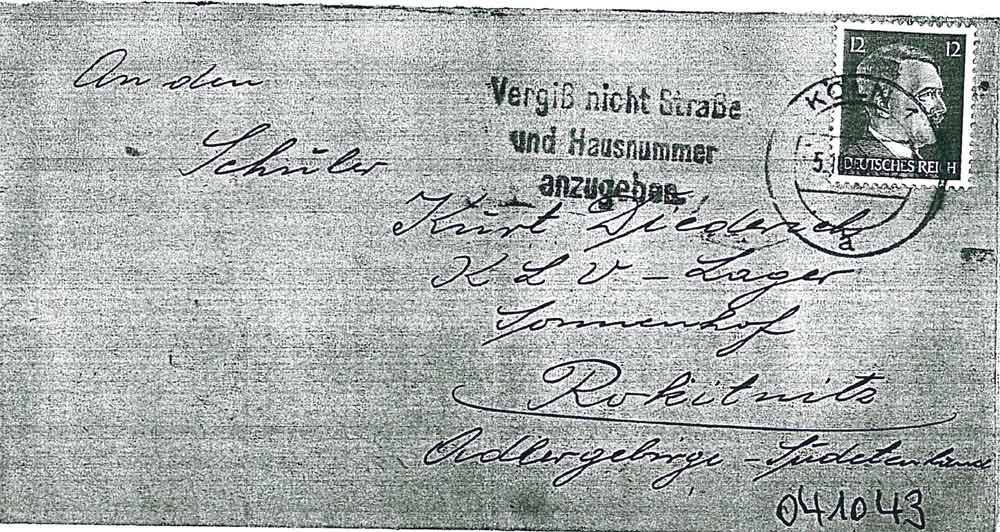 12 12
DEUTSCHES REICH
KÖLN 1
5.
a
Vergiß nicht Straße
und Hausnummer
anzugeben
An den
Schüler
Kurt Diederich
K L V - Lager
Sonnenhof
Rokitnitz
Adlergebirge - Sudetenland
041043